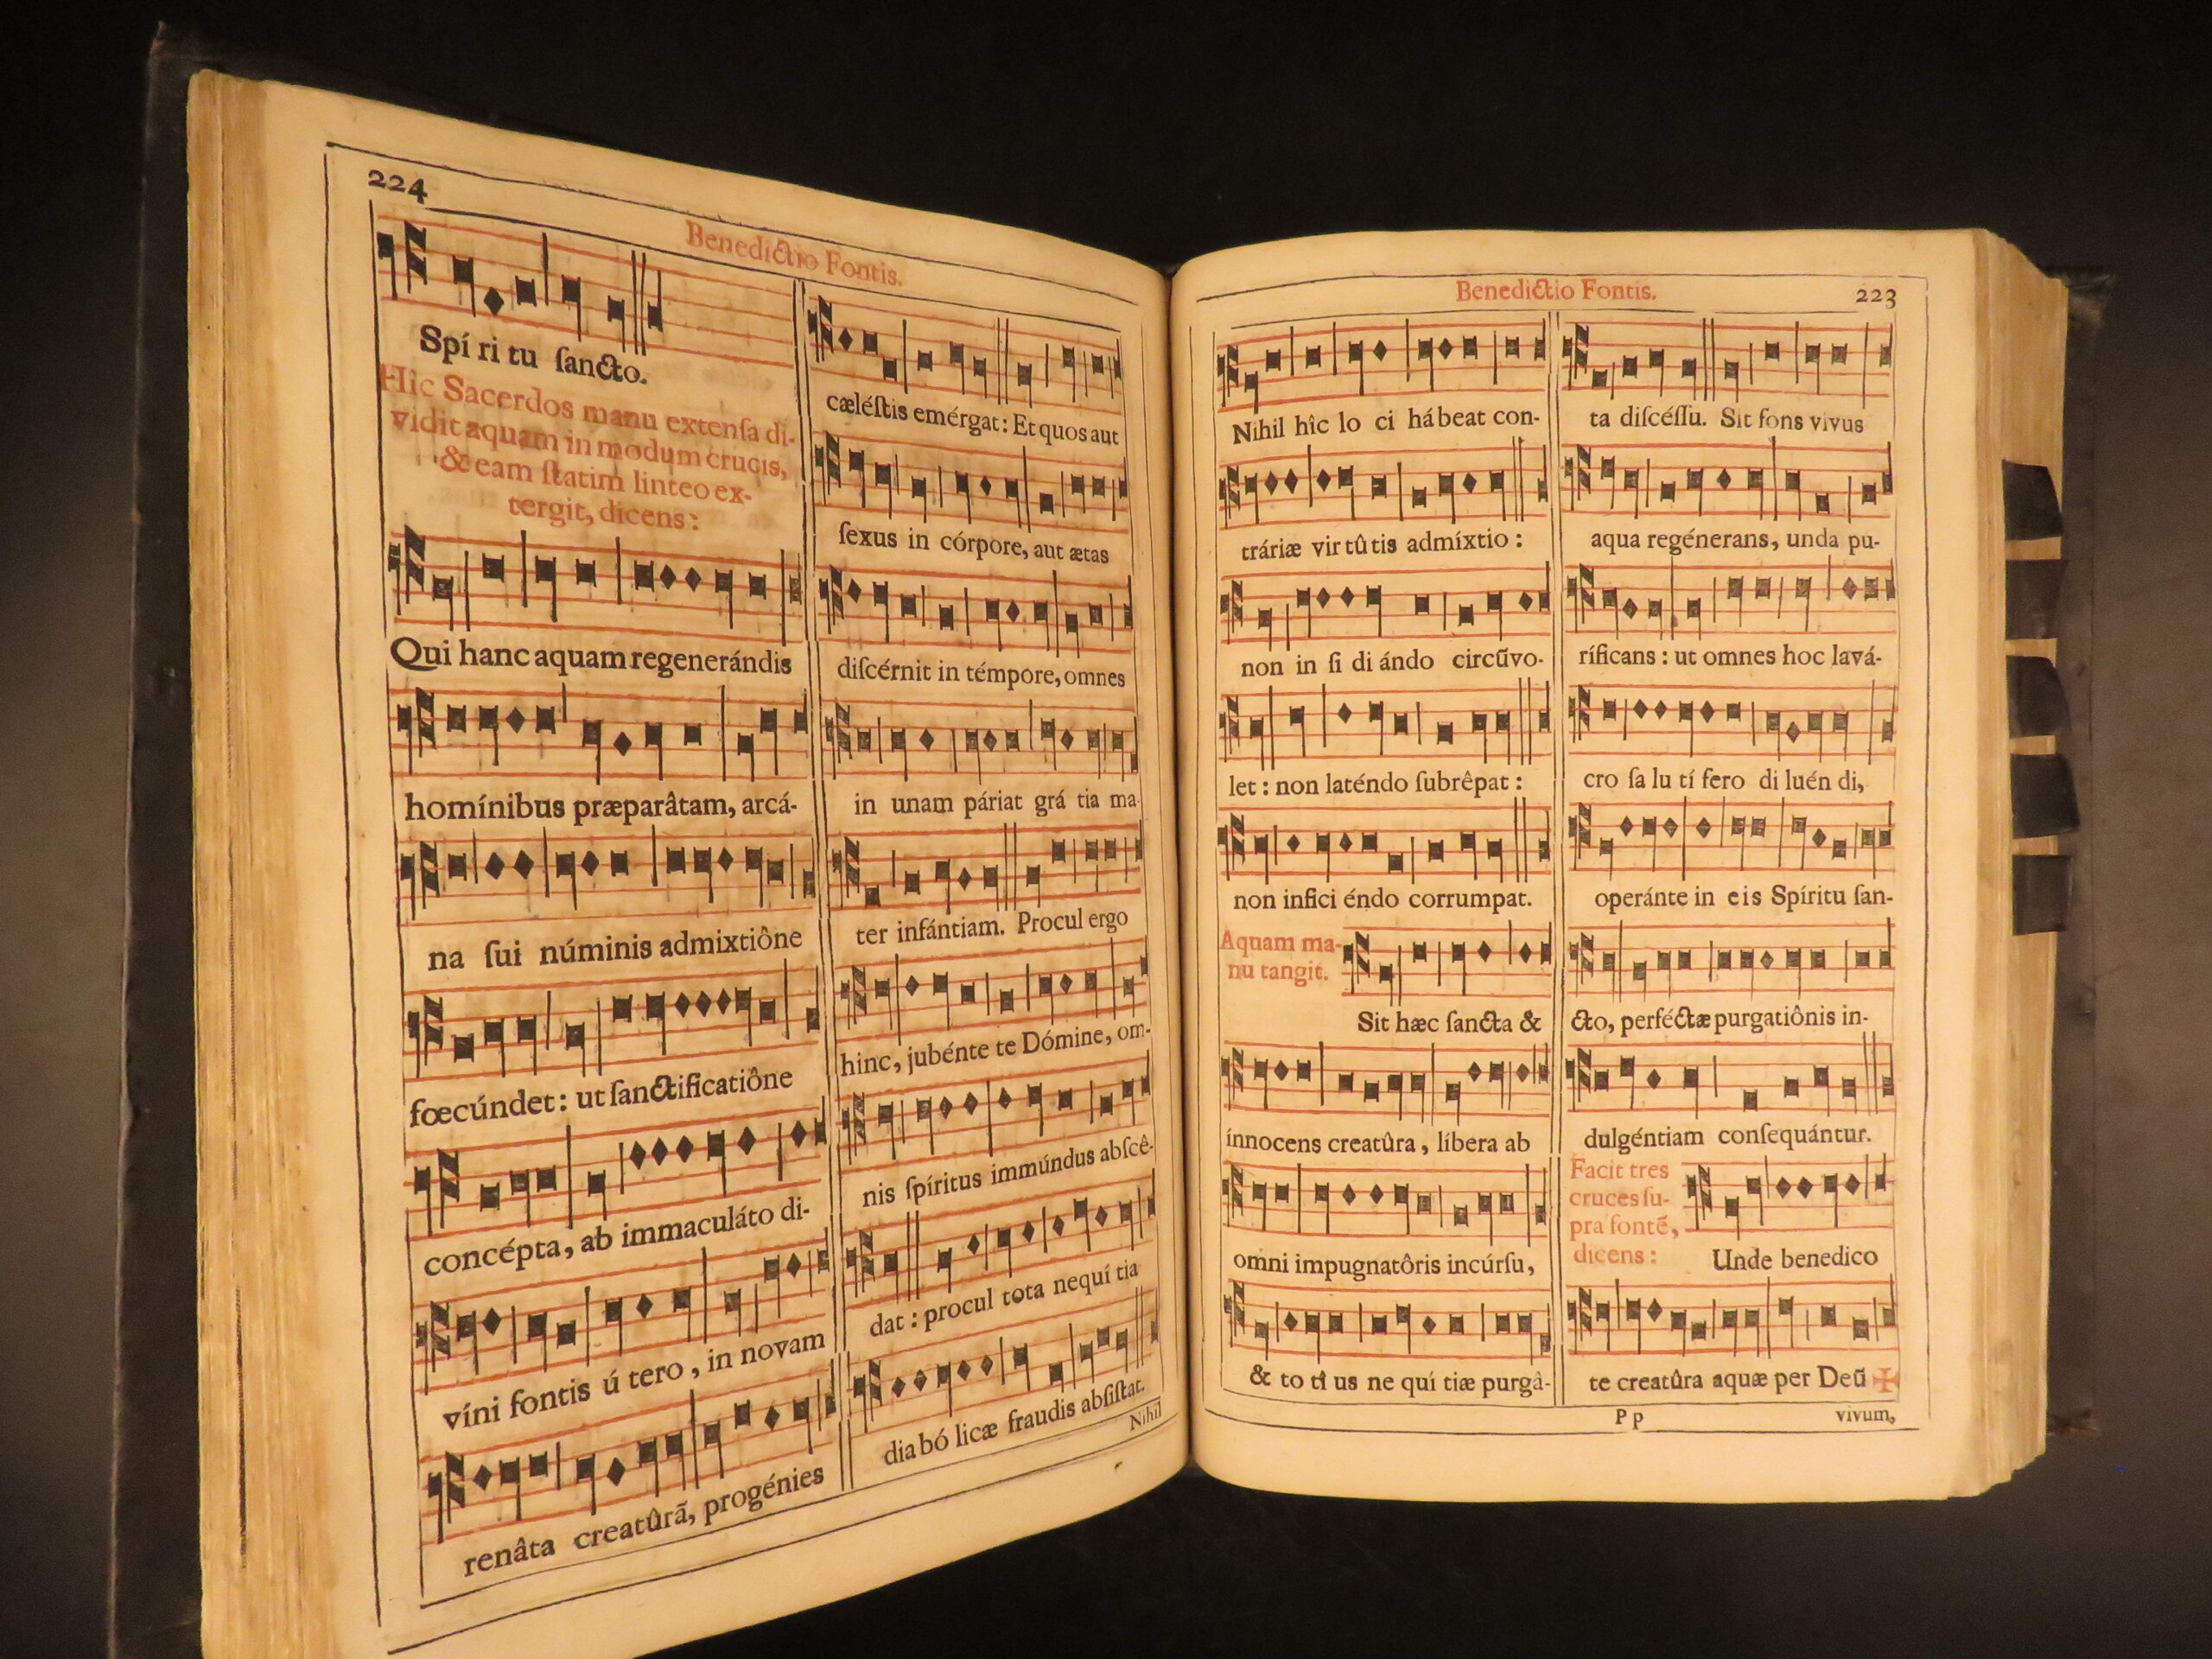 224
Benedictio Fontis.
Spí ri tu ſancto.
Hîc Sacerdos manu extenſa di-
vidit aquam in modum crucis,
& eam ſtatim linteo ex-
tergit, dicens:
Qui hanc aquam regenerándis
homínibus præparâtam, arcá-
na ſui núminis admixtiône
fœcúndet: ut ſanctificatiône
concépta, ab immaculáto di-
víni fontis ú tero, in novam
renâta creatûrã, progénies
cæléſtis emérgat: Et quos aut
ſexus in córpore, aut ætas
diſcérnit in témpore, omnes
in unam páriat grá tia ma-
ter infántiam. Procul ergo
hinc, jubénte te Dómine, om-
nis ſpíritus immúndus abſcê-
dat: procul tota nequí tia
diabó licæ fraudis abſiſtat.
Nihil
Benedictio Fontis.
223
Nihil hîc lo ci hábeat con-
tráriæ virtûtis admíxtio:
non in ſi di ándo circũvo-
let: non laténdo ſubrêpat:
non infici éndo corrumpat.
Aquam ma-
nu tangit.
Sit hæc ſancta &
ínnocens creatûra, líbera ab
omni impugnatôris incúrſu,
& to tî us ne quí tiæ purgâ-
ta diſcéſſu. Sit fons vivus
aqua regénerans, unda pu-
ríficans: ut omnes hoc lavá-
cro ſa lu tí fero di luén di,
operánte in eis Spíritu ſan-
cto, perféctæ purgatiônis in-
dulgéntiam conſequántur.
Facit tres
cruces ſu-
pra fontẽ,
dicens:
Unde benedico
te creatûra aquæ per Deũ ✠
P p
vivum,